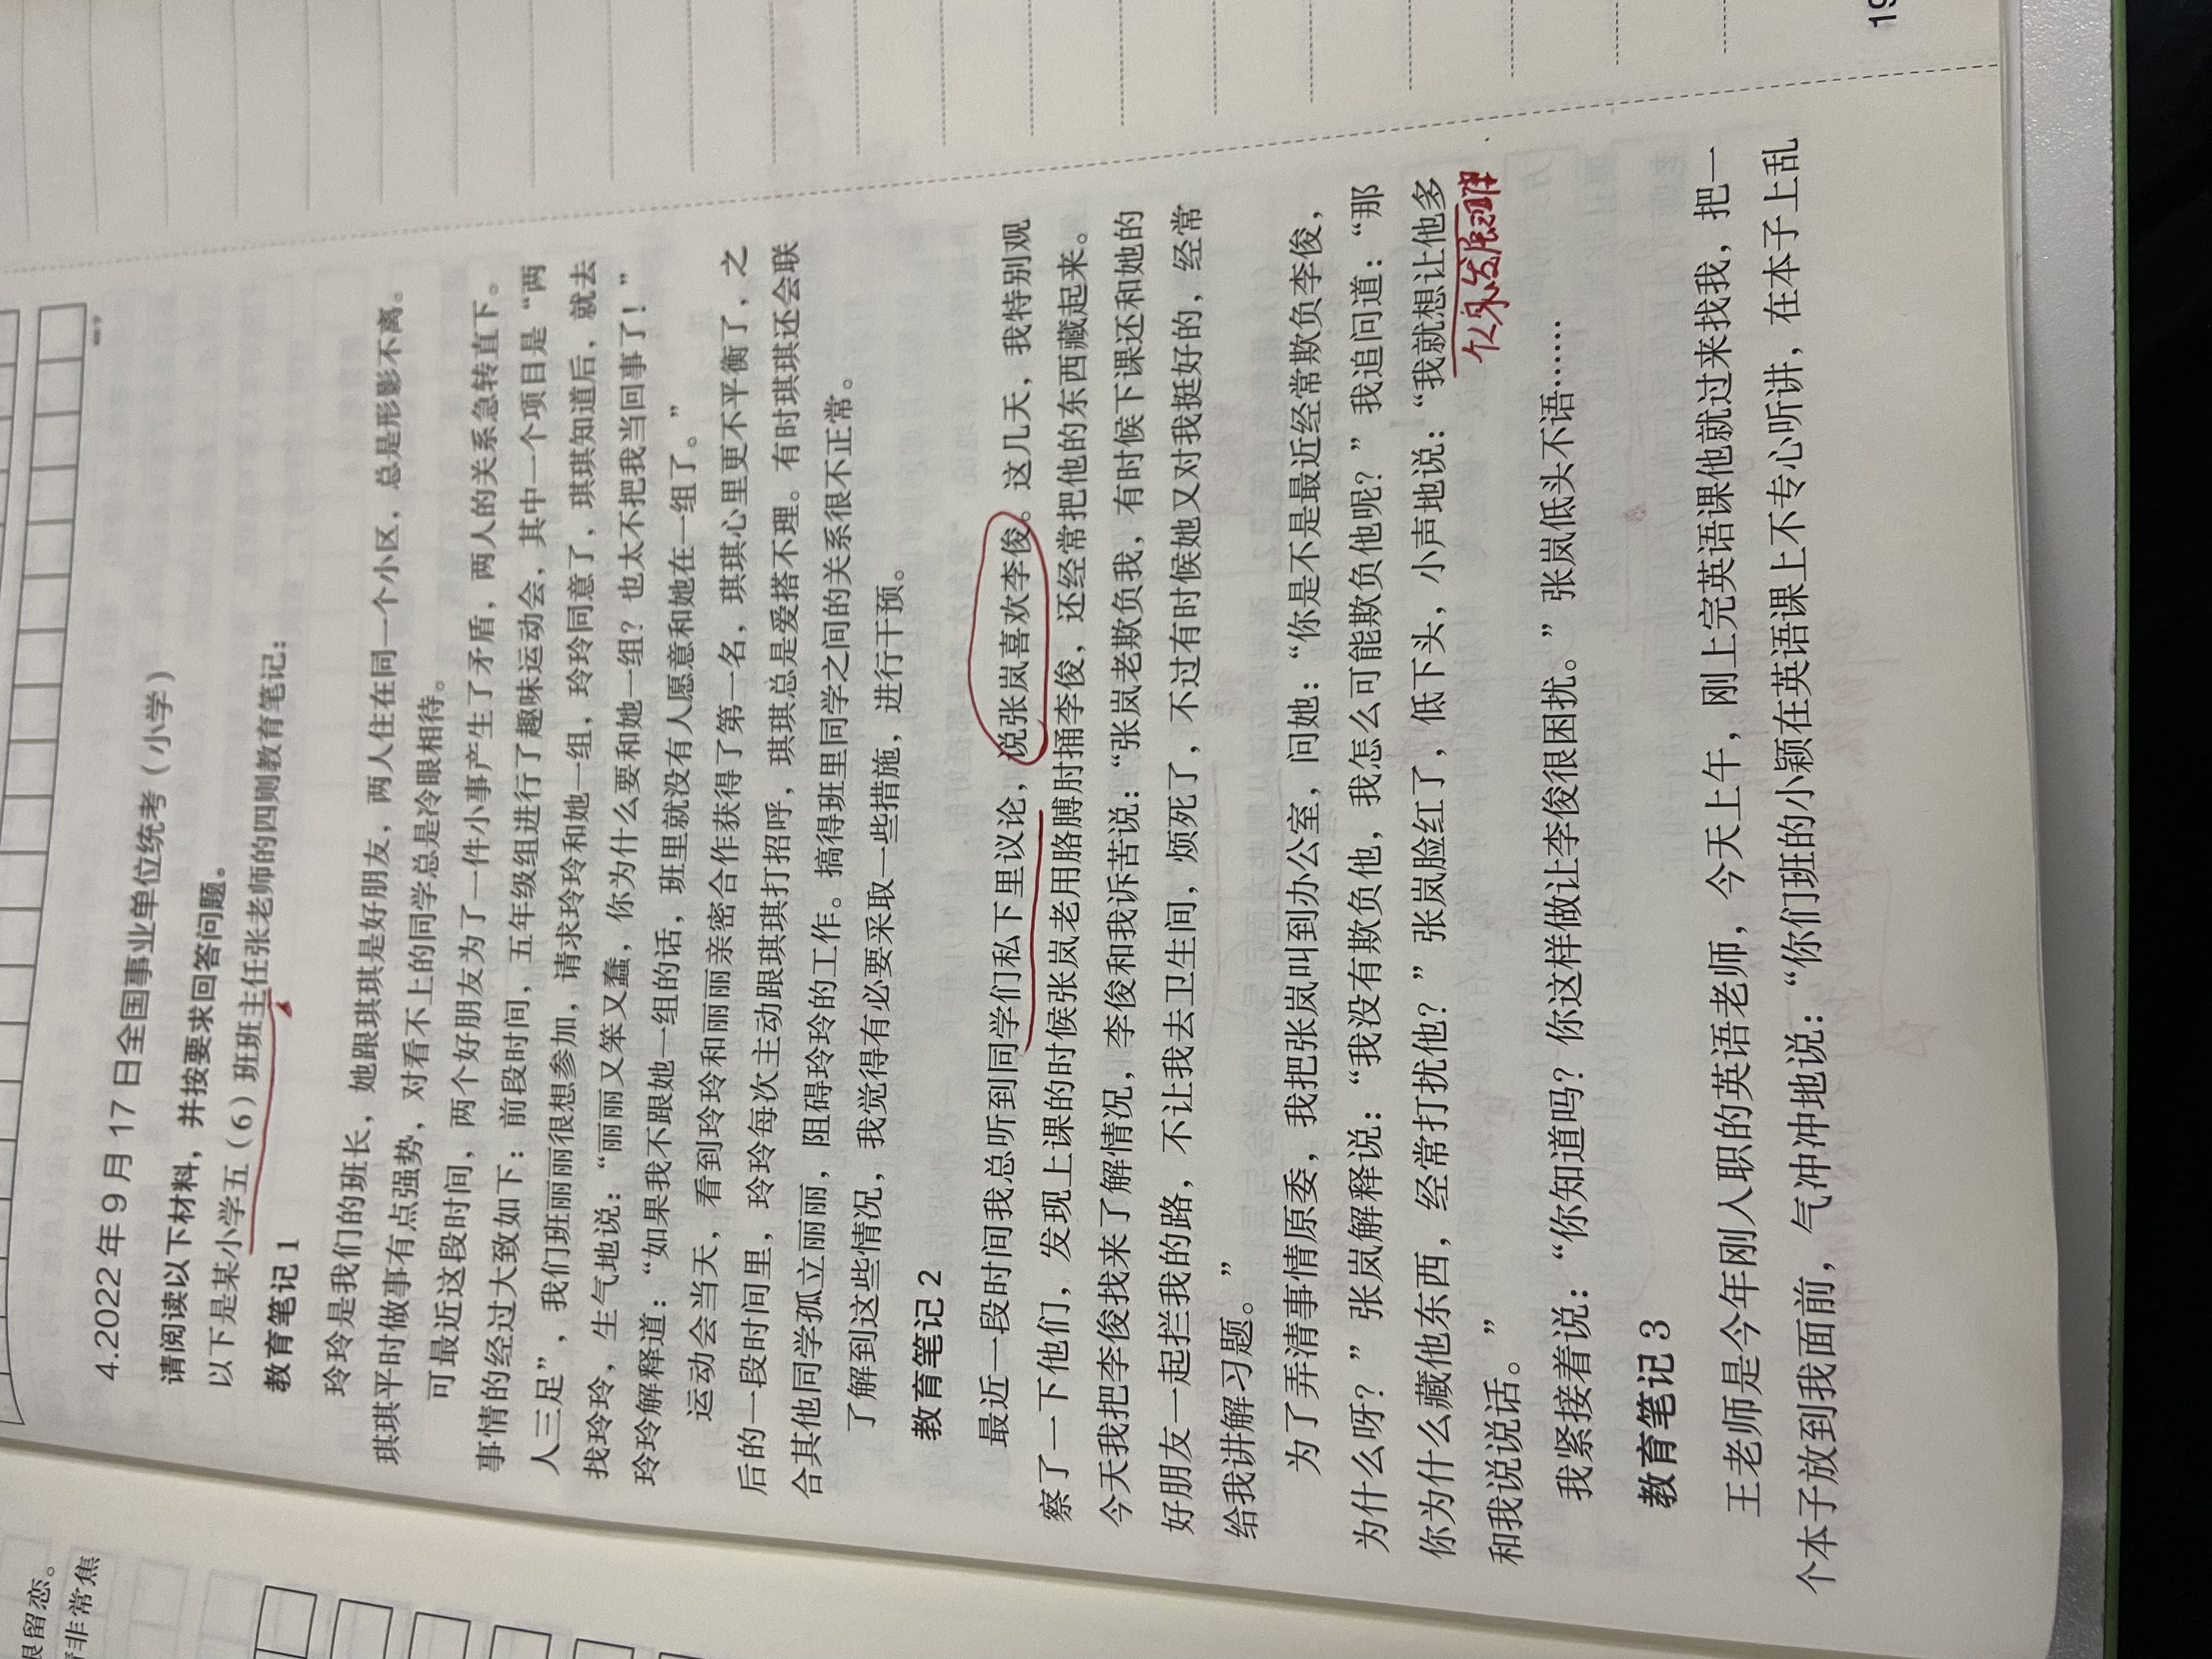 19
很留恋。
情非常焦
4.2022 年 9 月 17 日全国事业单位统考（小学）
请阅读以下材料，并按要求回答问题。
以下是某小学五（6）班班主任张老师的四则教育笔记：
教育笔记 1
玲玲是我们的班长，她跟琪琪是好朋友，两人住在同一个小区，总是形影不离。
琪琪平时做事有点强势，对看不上的同学总是冷眼相待。
可最近这段时间，两个好朋友为了一件小事产生了矛盾，两人的关系急转直下。
事情的经过大致如下：前段时间，五年级组进行了趣味运动会，其中一个项目是“两
人三足”，我们班丽丽很想参加，请求玲玲和她一组，玲玲同意了，琪琪知道后，就去
找玲玲，生气地说：“丽丽又笨又蠢，你为什么要和她一组？也太不把我当回事了！”
玲玲解释道：“如果我不跟她一组的话，班里就没有人愿意和她在一组了。”
运动会当天，看到玲玲和丽丽亲密合作获得了第一名，琪琪心里更不平衡了，之
后的一段时间里，玲玲每次主动跟琪琪打招呼，琪琪总是爱搭不理。有时琪琪还会联
合其他同学孤立丽丽，阻碍玲玲的工作。搞得班里同学之间的关系很不正常。
了解到这些情况，我觉得有必要采取一些措施，进行干预。
教育笔记 2
最近一段时间我总听到同学们私下里议论，说张岚喜欢李俊。这几天，我特别观
察了一下他们，发现上课的时候张岚老用胳膊肘捅李俊，还经常把他的东西藏起来。
今天我把李俊找来了解情况，李俊和我诉苦说：“张岚老欺负我，有时候下课还和她的
好朋友一起拦我的路，不让我去卫生间，烦死了，不过有时候她又对我挺好的，经常
给我讲解习题。”
为了弄清事情原委，我把张岚叫到办公室，问她：“你是不是最近经常欺负李俊，
为什么呀？”张岚解释说：“我没有欺负他，我怎么可能欺负他呢？”我追问道：“那
你为什么藏他东西，经常打扰他？”张岚脸红了，低下头，小声地说：“我就想让他多
和我说说话。”
我紧接着说：“你知道吗？你这样做让李俊很困扰。”张岚低头不语……
教育笔记 3
王老师是今年刚入职的英语老师，今天上午，刚上完英语课他就过来找我，把一
个本子放到我面前，气冲冲地说：“你们班的小颖在英语课上不专心听讲，在本子上乱